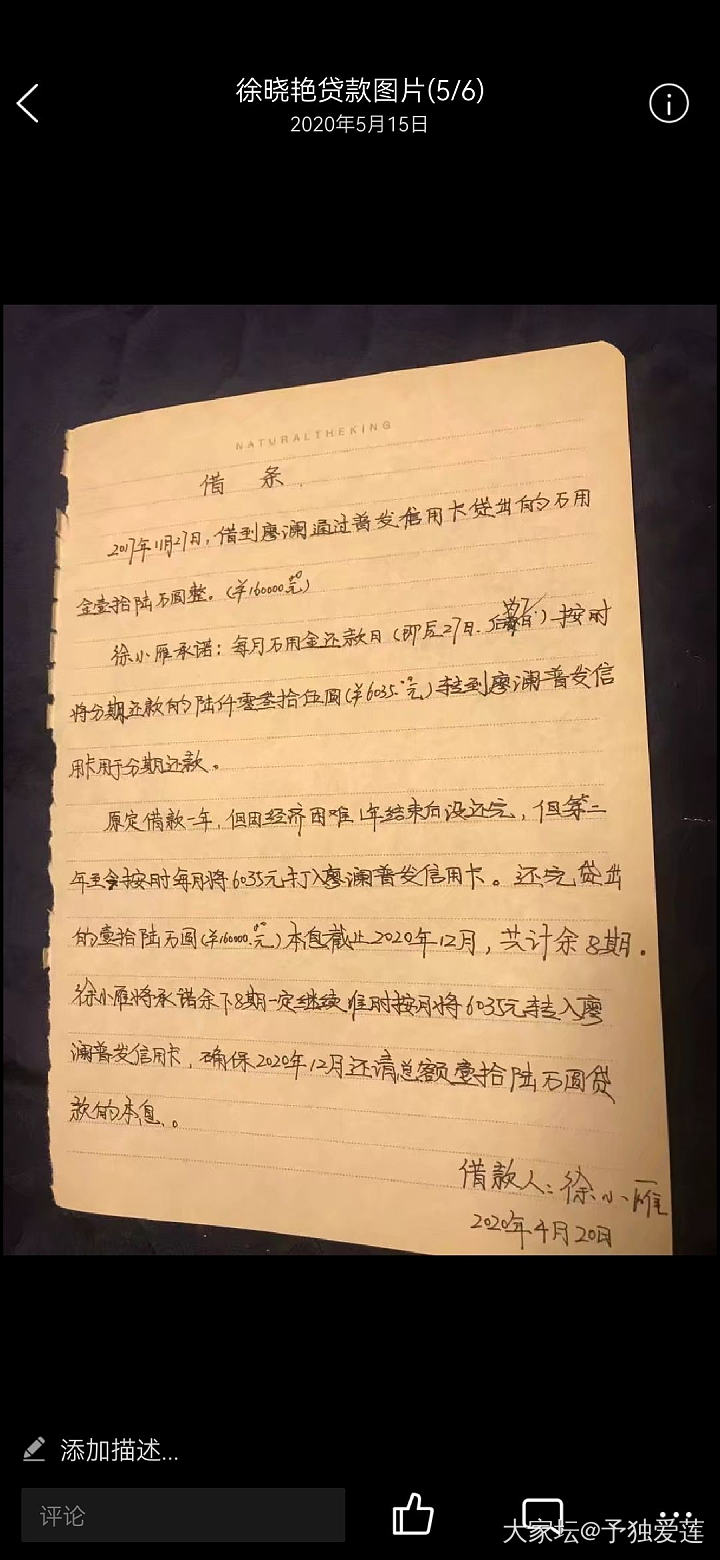 徐晓艳贷款图片(5/6)
2020年5月15日
NATURALTHEKING
借 条
2017年11月27日，借到廖澜通过普发信用卡贷出的万用
金壹拾陆万圆整。(¥160000.00元)
徐小雁承诺：每月万用金还款日（即每月27日）按时
将分期还款的陆仟零叁拾伍圆(¥6035.00元)转到廖澜普发信
用卡用于分期还款。
原定借款一年，但因经济困难1年结束后没还完，但第二
年至今按时每月将6035元打入廖澜普发信用卡。还完贷出
的壹拾陆万圆(¥160000.00元)本息截止2020年12月，共计余8期.
徐小雁将承诺余下8期一定继续准时按月将6035元转入廖
澜普发信用卡，确保2020年12月还请总额壹拾陆万圆贷
款的本息。
借款人：徐小雁
2020年4月20日
添加描述...
评论
大家坛@予独爱莲